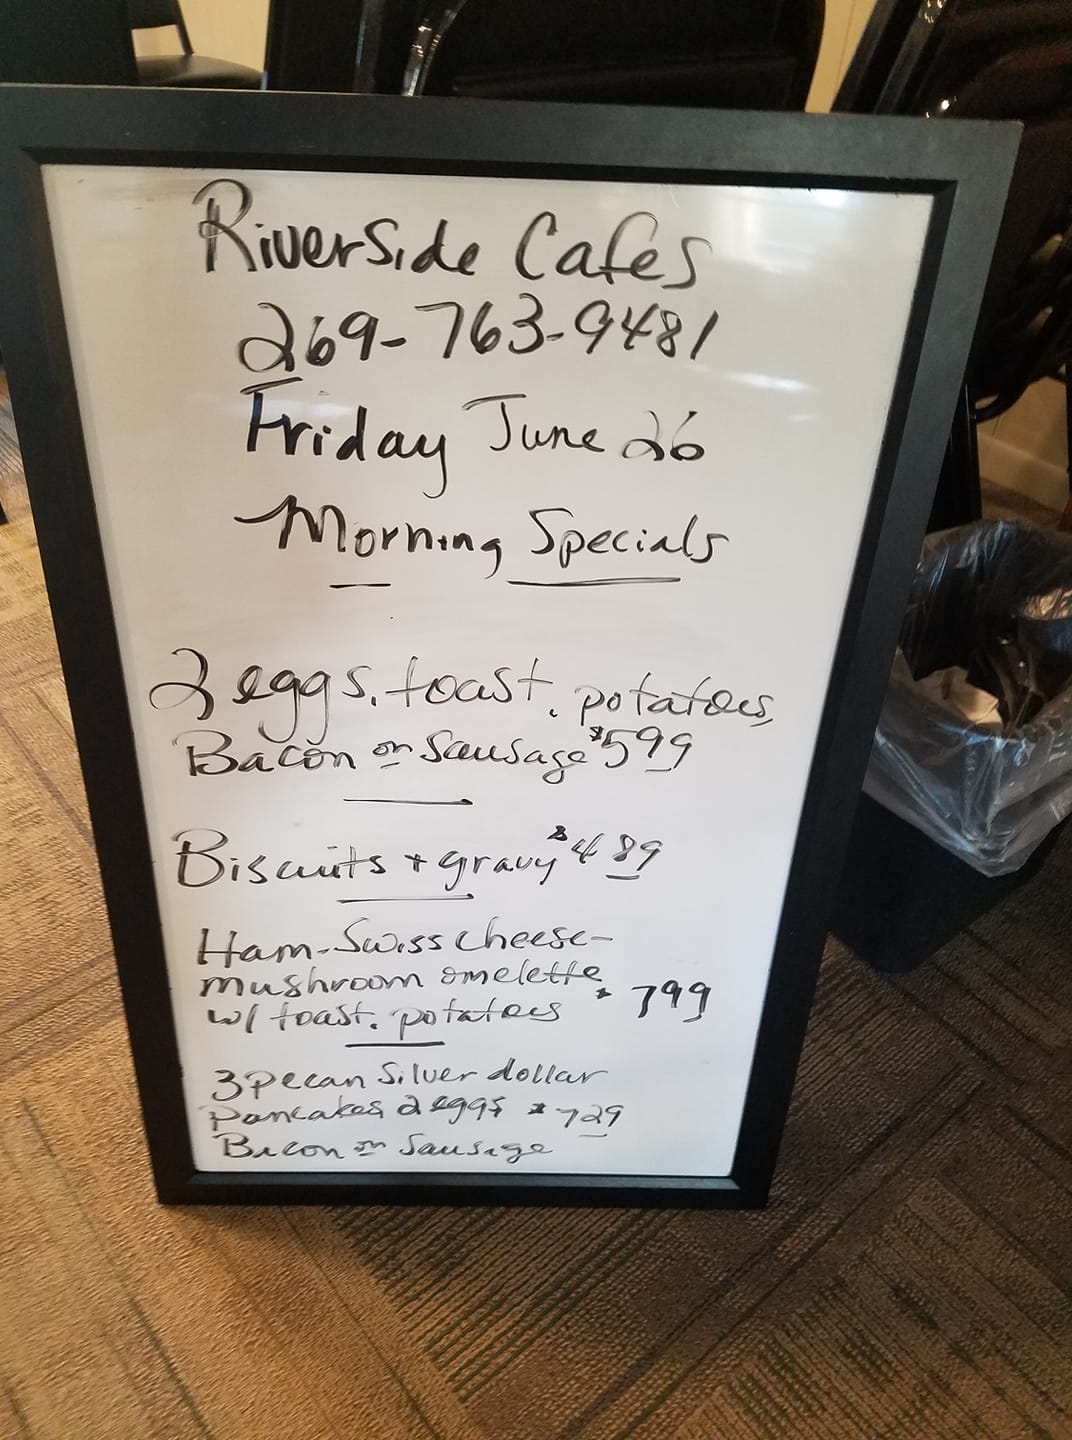 Riverside Cafes
269-763-9481
Friday June 26
Morning Specials
2 eggs, toast, potatoes,
Bacon or Sausage $5 99
Biscuits + gravy $4 89
Ham-Swiss cheese-
mushroom omelette
w/ toast, potatoes $ 799
3 pecan Silver dollar
pancakes 2 eggs $ 729
Bacon or Sausage